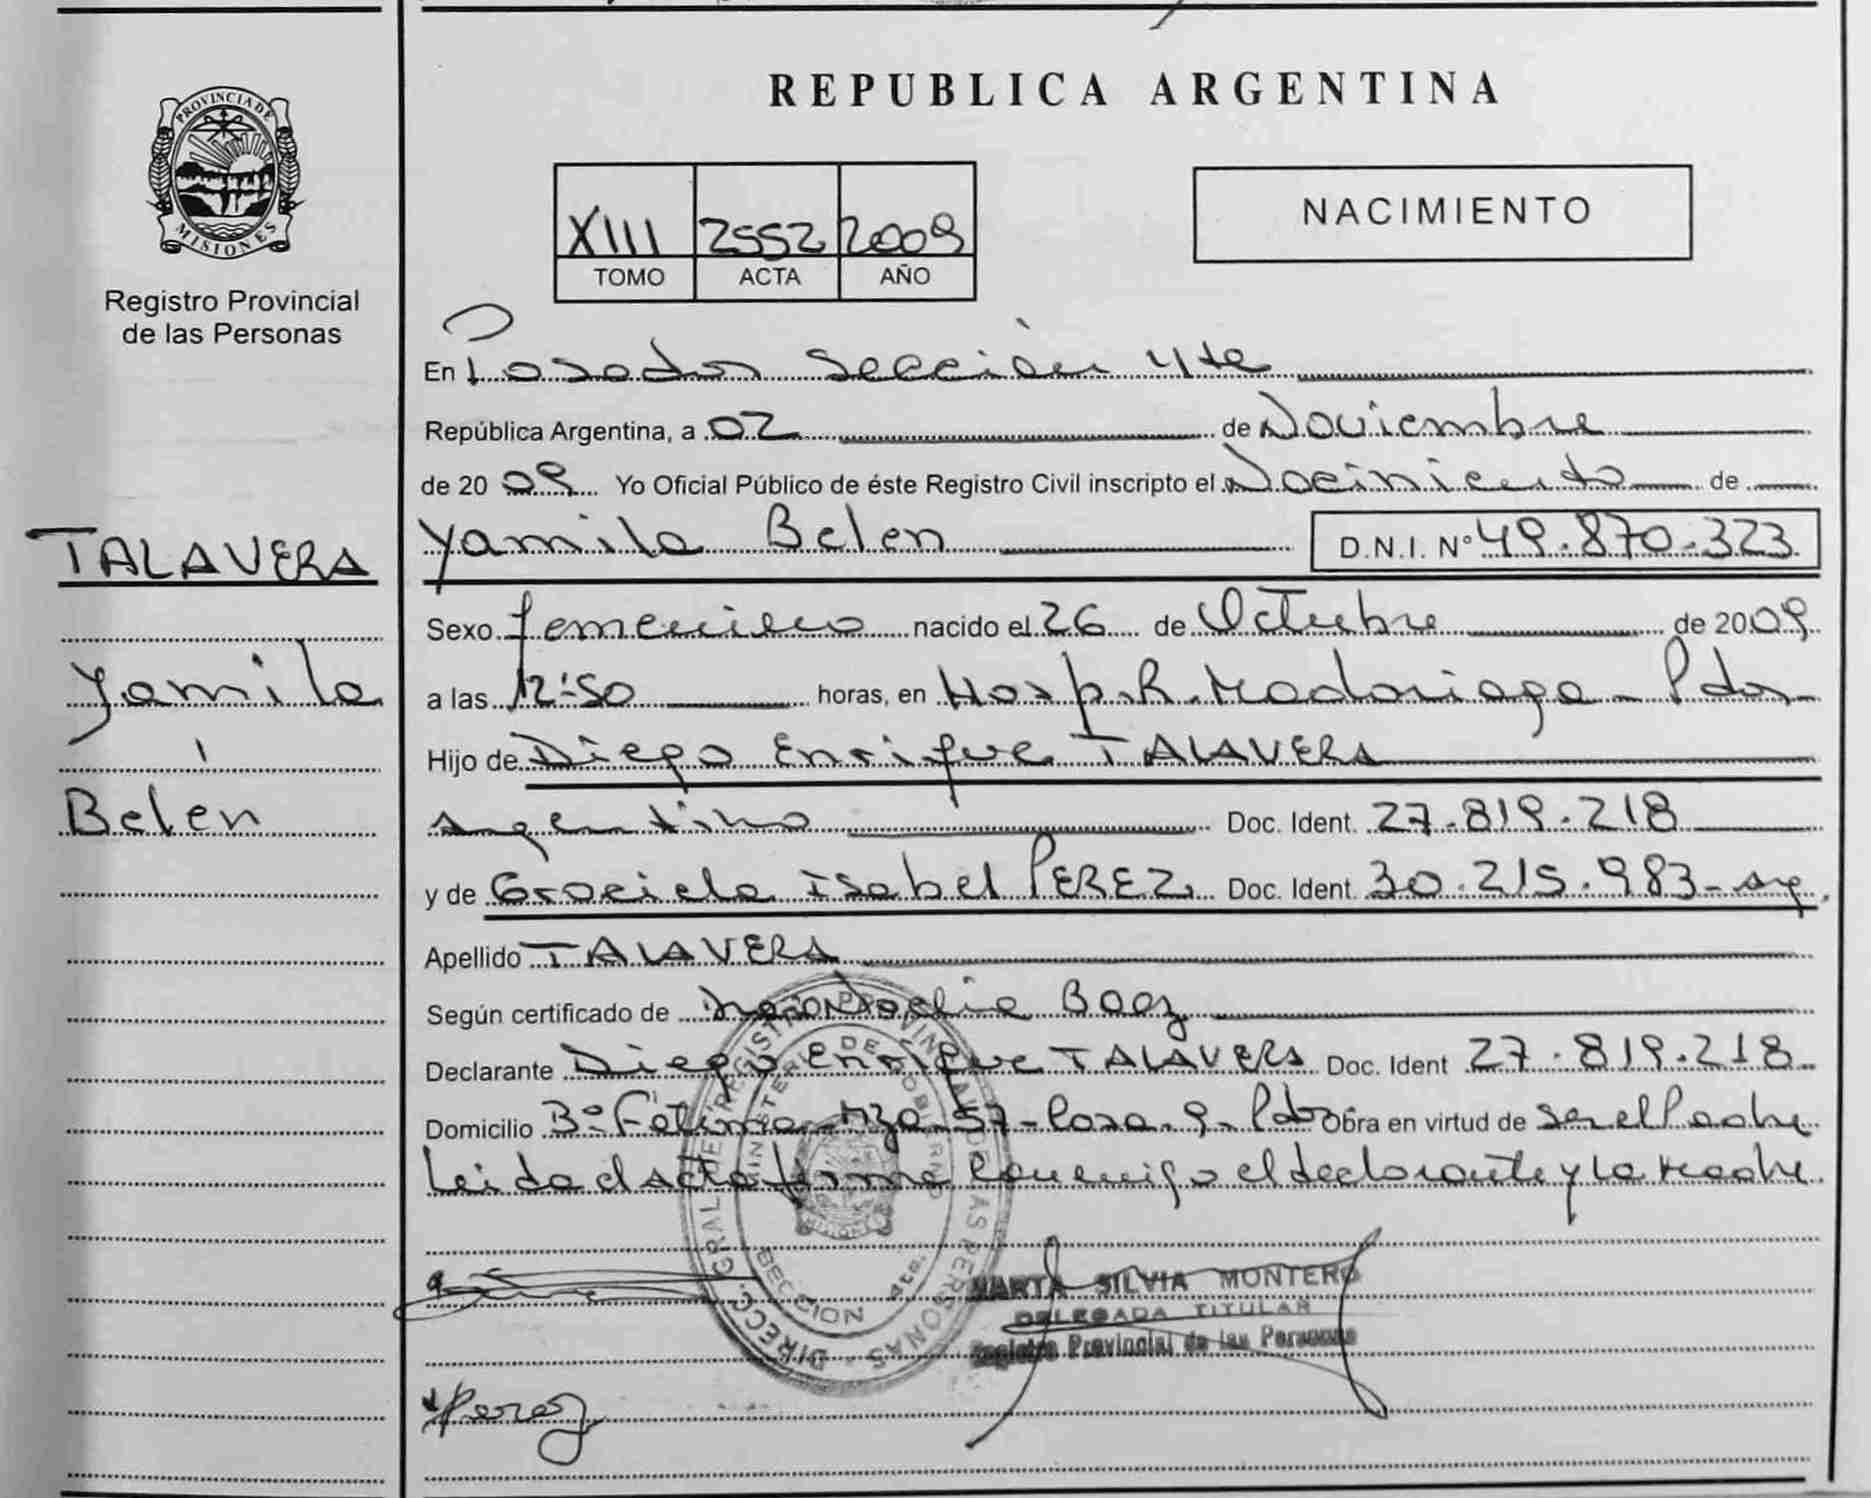 REPUBLICA ARGENTINA
PROVINCIA DE
MISIONES
Registro Provincial
de las Personas
XIII 2552 2009
TOMO ACTA AÑO
NACIMIENTO
En Posadas Sección 4ta
República Argentina, a 02 de Noviembre
de 20 09 Yo Oficial Público de éste Registro Civil inscripto el Nacimiento de
Yamila Belen D.N.I. Nº 49.870.323
TALAVERA
Yamila
Belén
Sexo femenino nacido el 26 de Octubre de 2009
a las 12:50 horas, en Hosp. R. Madariaga - Pdas
Hijo de Diego Enrique TALAVERA
Argentino Doc. Ident. 27.819.218
y de Graciela Isabel PEREZ Doc. Ident. 30.215.983 - arg.
Apellido TALAVERA
Según certificado de Noelia Baez
Declarante Diego Enrique TALAVERA Doc. Ident 27.819.218
Domicilio Bº Fátima - Mza - 57 - Casa - 9 - Pdas Obra en virtud de ser el Padre
Leida el acta firma conmigo el declarante y la Madre
DIRECC. GRAL. DE REGISTRO PROVINCIAL DE LAS PERSONAS
MINISTERIO DE GOBIERNO
SECCION 4ta.
MARTA SILVIA MONTERO
DELEGADA TITULAR
Registro Provincial de las Personas
Perez